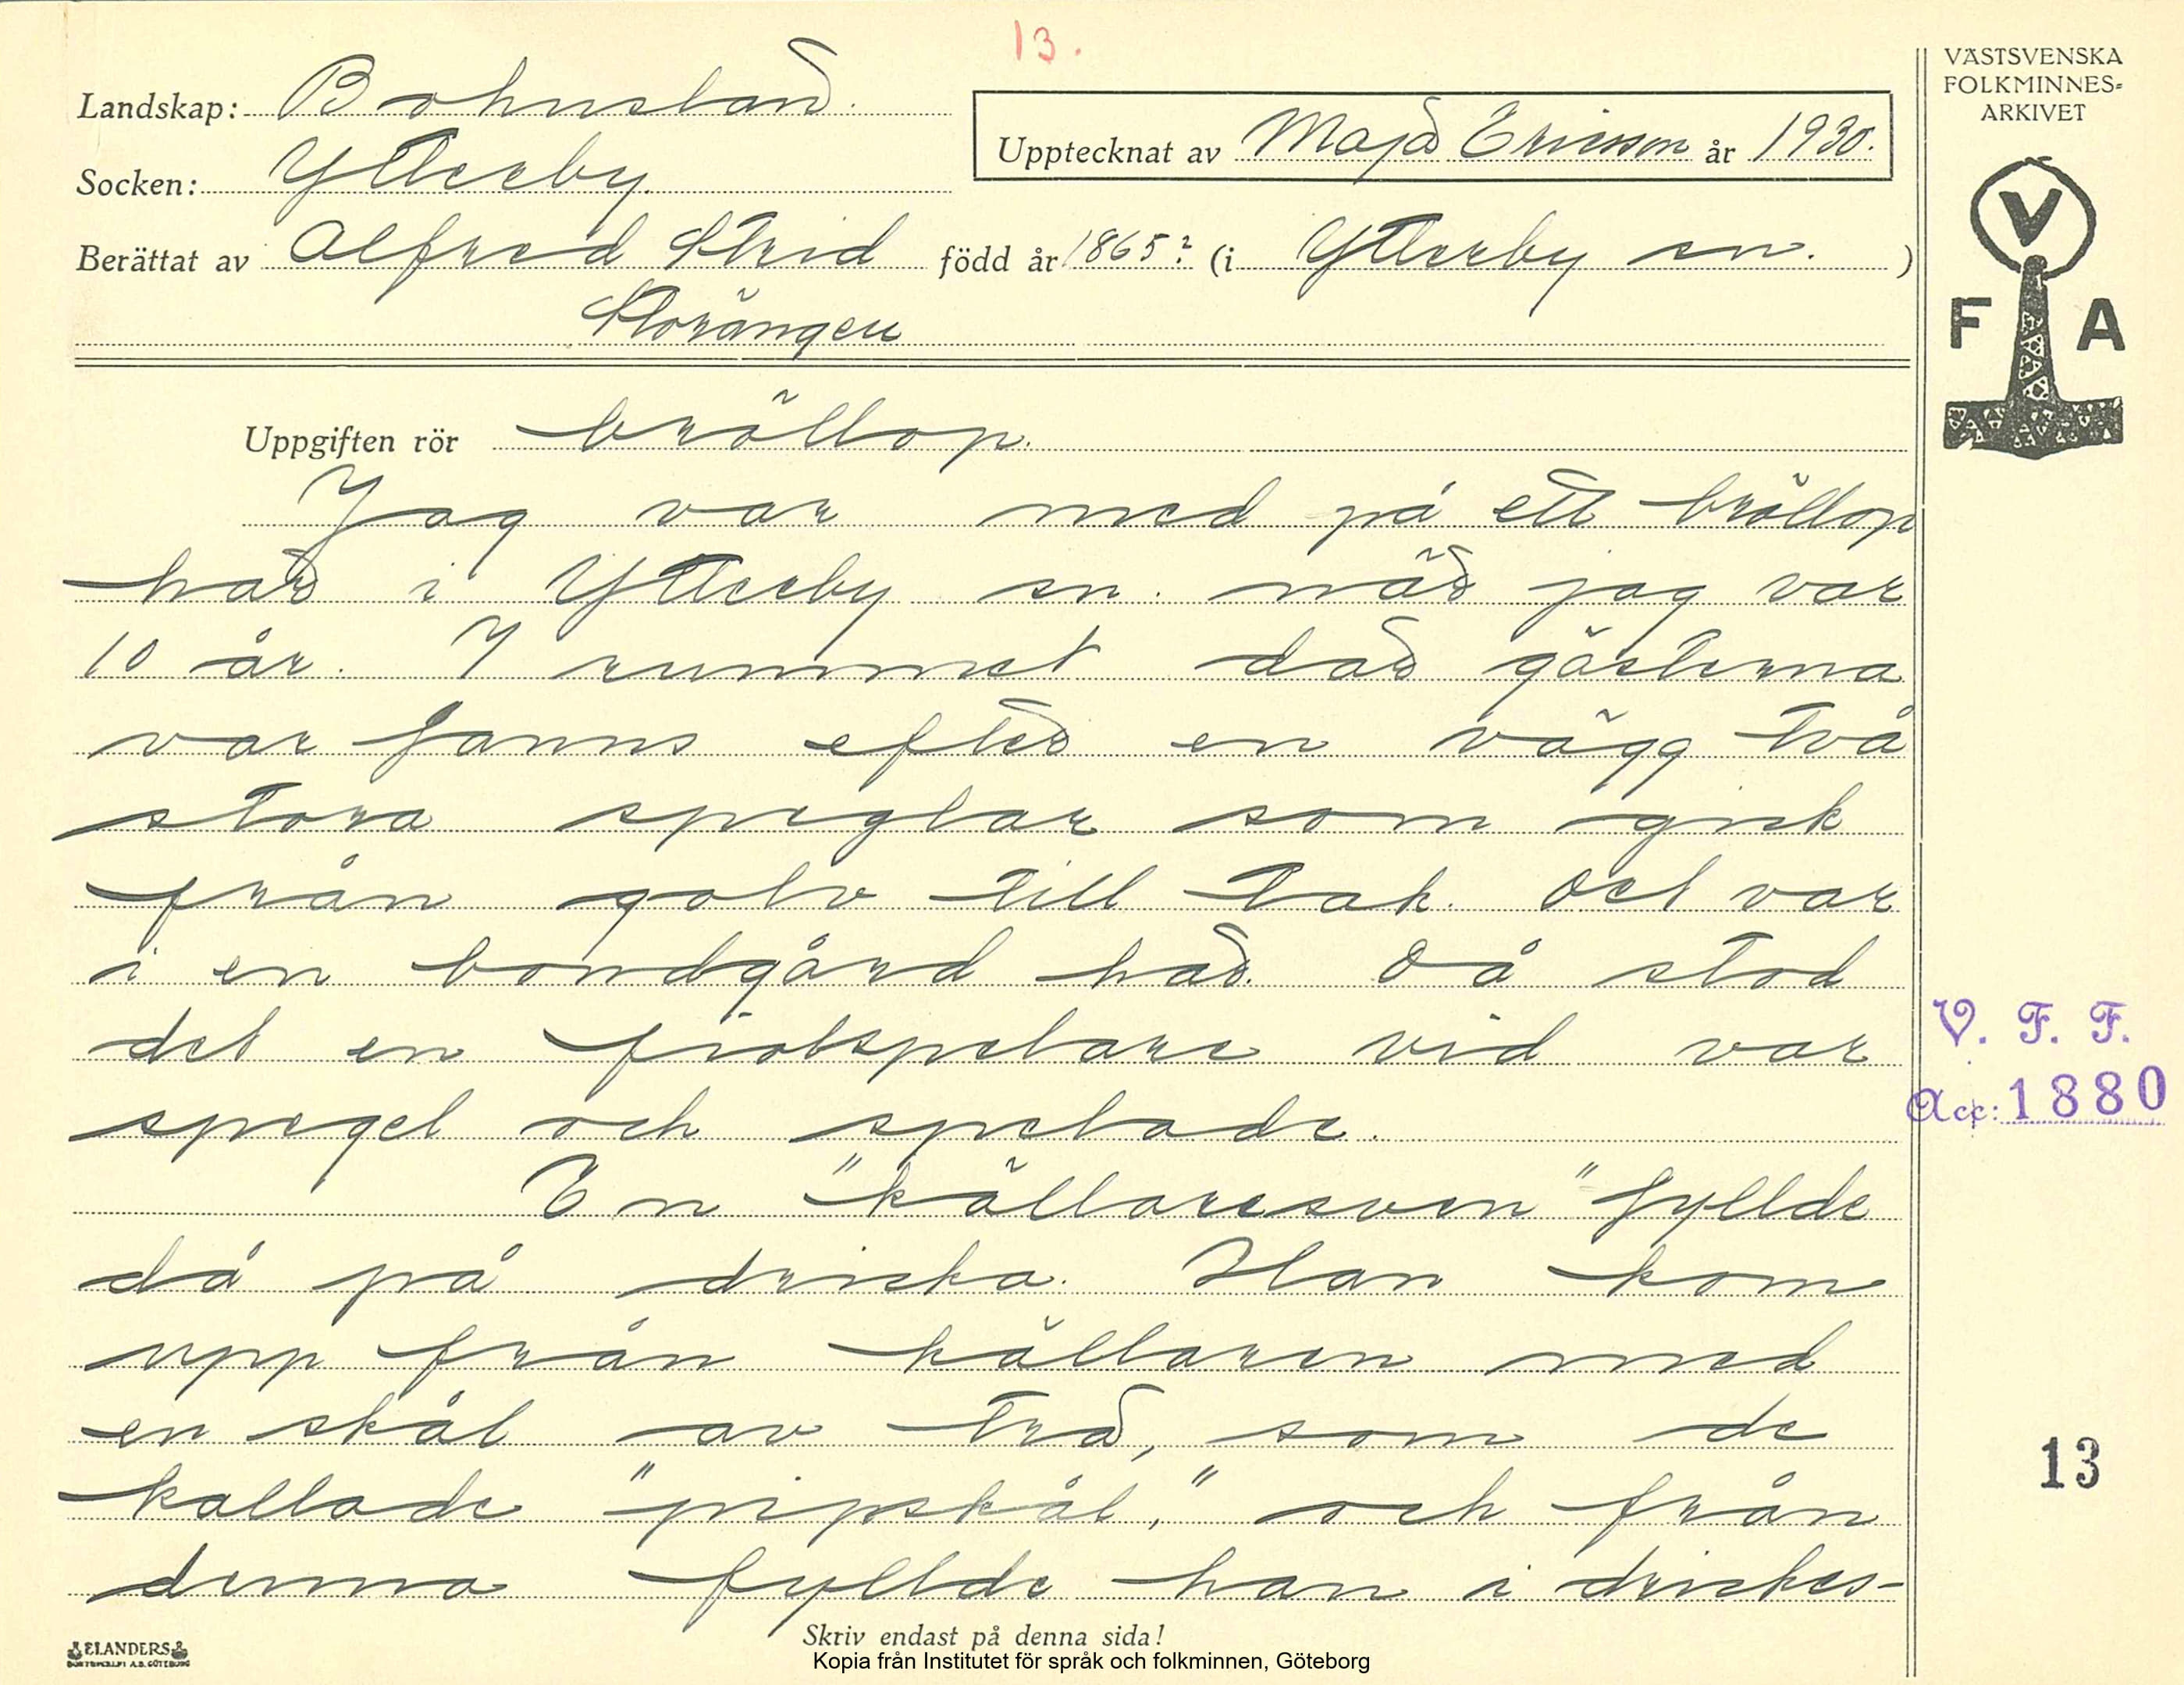 13.
Landskap: Bohuslän.
Socken: Ytterby.
Upptecknat av Maja Ericsson år 1930.
Berättat av Alfred Strid född år 1865? (i Ytterby sn. )
Storängen
VÄSTSVENSKA
FOLKMINNES-
ARKIVET
V
F A
Uppgiften rör bröllop.
Jag var med på ett bröllop
här i Ytterby sn. när jag var
10 år. I rummet där gästerna
var fanns efter en vägg två
stora speglar som gick
från golv till tak. Det var
i en bondgård här. Då stod
det en fiolspelare vid var
spegel och spelade.
En "källaresven" fyllde
då på dricka. Han kom
upp från källaren med
en skål av trä, som de
kallade "pipskål," och från
denna fyllde han i drickes-
V. F. F.
Acc: 1880
13
Skriv endast på denna sida!
ELANDERS
BOKTRYCKERI A.B. GÖTEBORG
Kopia från Institutet för språk och folkminnen, Göteborg